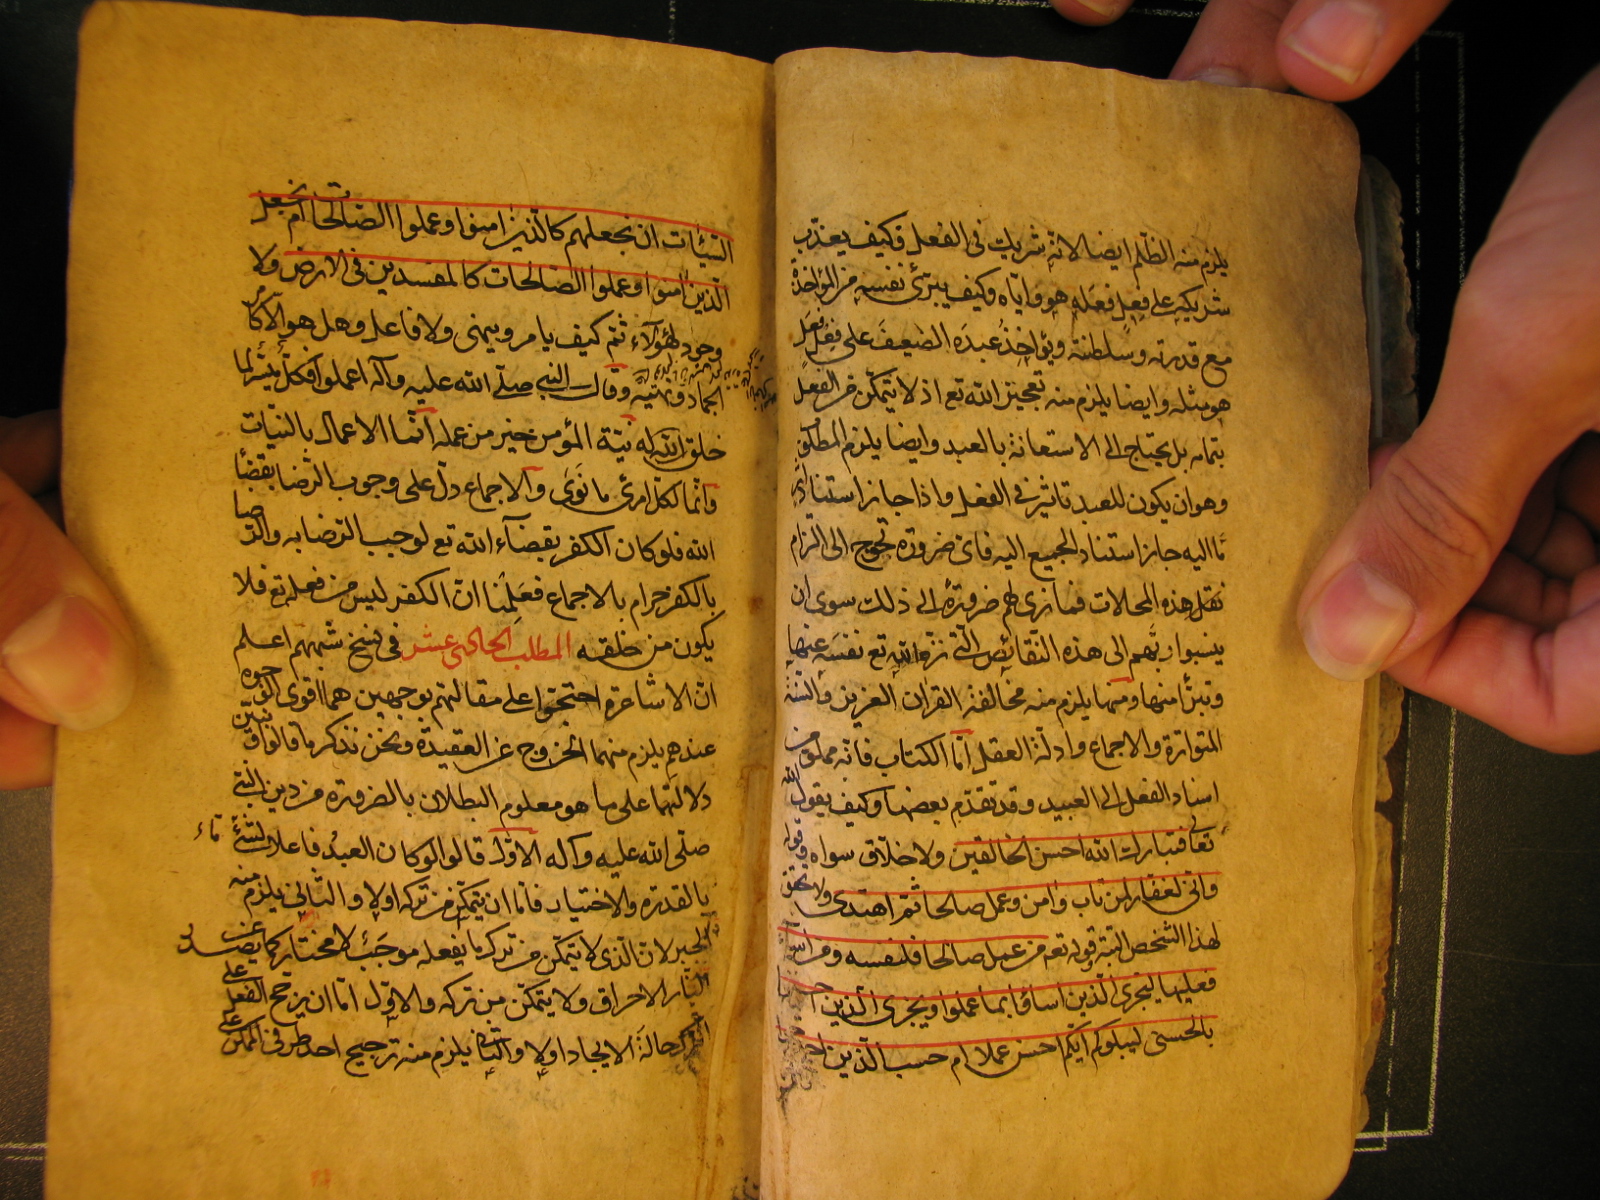 يلزم منه الظلم ايضا لانه شريك فى الفعل وكيف يعذب
شريكه على فعل فعله هو واياه وكيف يبرئ نفسه من المؤاخذة
مع قدرته وسلطنته ويؤاخذ عبده الضعيف على فعل فعل
هو مثله وايضا يلزم منه تعجيز الله تع اذ لا يتمكن من الفعل
بتمامه بل يحتاج الى الاستعانة بالعبد وايضا يلزم المطلوب
وهو ان يكون للعبد تاثير فى الفعل واذا جاز استناد اثر
ما اليه جاز استناد الجميع اليه فاى ضرورة تحوج الى التزام
نقل هذه المحالات فما نرى لهم ضرورة الى ذلك سوى ان
ينسبوا ربهم الى هذه النقائص التى نزه الله تع نفسه عنها
وتبرأ منها ومنها يلزم منه مخالفة القران العزيز والسنة
المتواترة والاجماع وادلة العقل اما الكتاب فانه مملو من
اسناد الفعل الى العبيد وقد تقدم بعضها وكيف يقول الله
تعالى فتبارك الله احسن الخالقين ولا خلاق سواه وقوله
وانى لغفار لمن تاب وامن وعمل صالحا ثم اهتدى ولا تحقق
لهذا الشخص البتة قوله تع من عمل صالحا فلنفسه ومن اساء
فعليها ليجزى الذين اساؤا بما عملوا ويجزى الذين احسنوا
بالحسنى ليبلوكم ايكم احسن عملا ام حسب الذين اجترحوا
السيئات ان نجعلهم كالذين امنوا وعملوا الصالحات ام نجعل
الذين امنوا وعملوا الصالحات كالمفسدين فى الارض ولا
وجود لهؤلاء ثم كيف يامر وينهى ولا فاعل وهل هو الا كامر
الجماد ونهيه وقال النبى صلى الله عليه وآله اعملوا فكل ميسر لما
خلق له نية المؤمن خير من عمله انما الاعمال بالنيات
وانما لكل امرئ ما نوى والاجماع دل على وجوب الرضا بقضاء
الله فلو كان الكفر بقضاء الله تع لوجب الرضا به والرضا
بالكفر حرام بالاجماع فعلمنا ان الكفر ليس من فعله تع فلا
يكون من خلقه المطلب الحادى عشر فى نسخ شبههم اعلم
ان الاشاعرة احتجوا على مقالتهم بوجهين هما اقوى الوجوه
عندهم يلزم منهما الخروج عن العقيدة ونحن نذكر ما قالوا ونبين
دلالتهما على ما هو معلوم البطلان بالضرورة من دين النبى
صلى الله عليه وآله الاول قالوا لو كان العبد فاعلا لشئ ما
بالقدرة والاختيار فاما ان يتمكن من تركه اولا والثانى يلزم منه
الجبر لان الذى لا يتمكن من ترك ما يفعله موجب لا مختار كما يصدر عن
النار الاحراق ولا يتمكن من تركه والاول اما ان يرجح الفعل على
الترك حالة الايجاد اولا والثانى يلزم منه ترجيح احد طرفى الممكن على